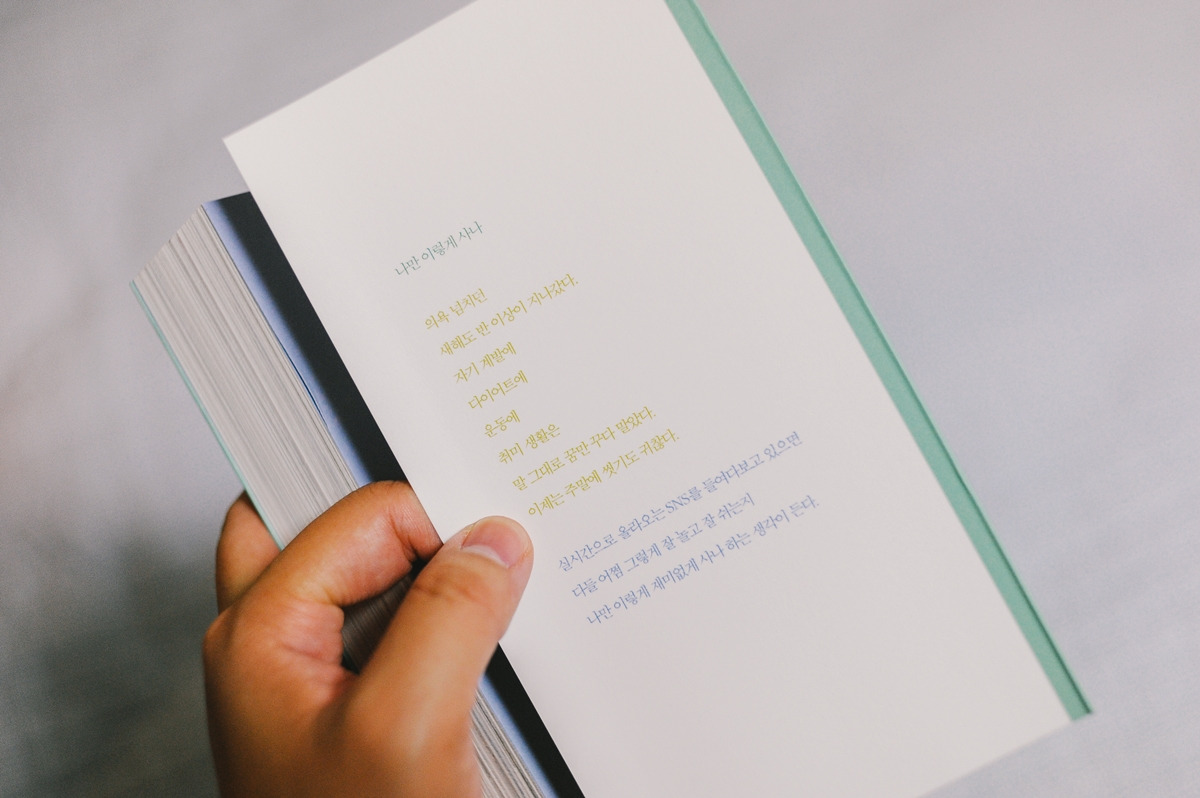 나만 이렇게 사나
의욕 넘치던
새해도 반 이상이 지나갔다.
자기 계발에
다이어트에
운동에
취미 생활은
말 그대로 꿈만 꾸다 말았다.
이제는 주말에 씻기도 귀찮다.
실시간으로 올라오는 SNS를 들여다보고 있으면
다들 어쩜 그렇게 잘 놀고 잘 쉬는지
나만 이렇게 재미없게 사나 하는 생각이 든다.